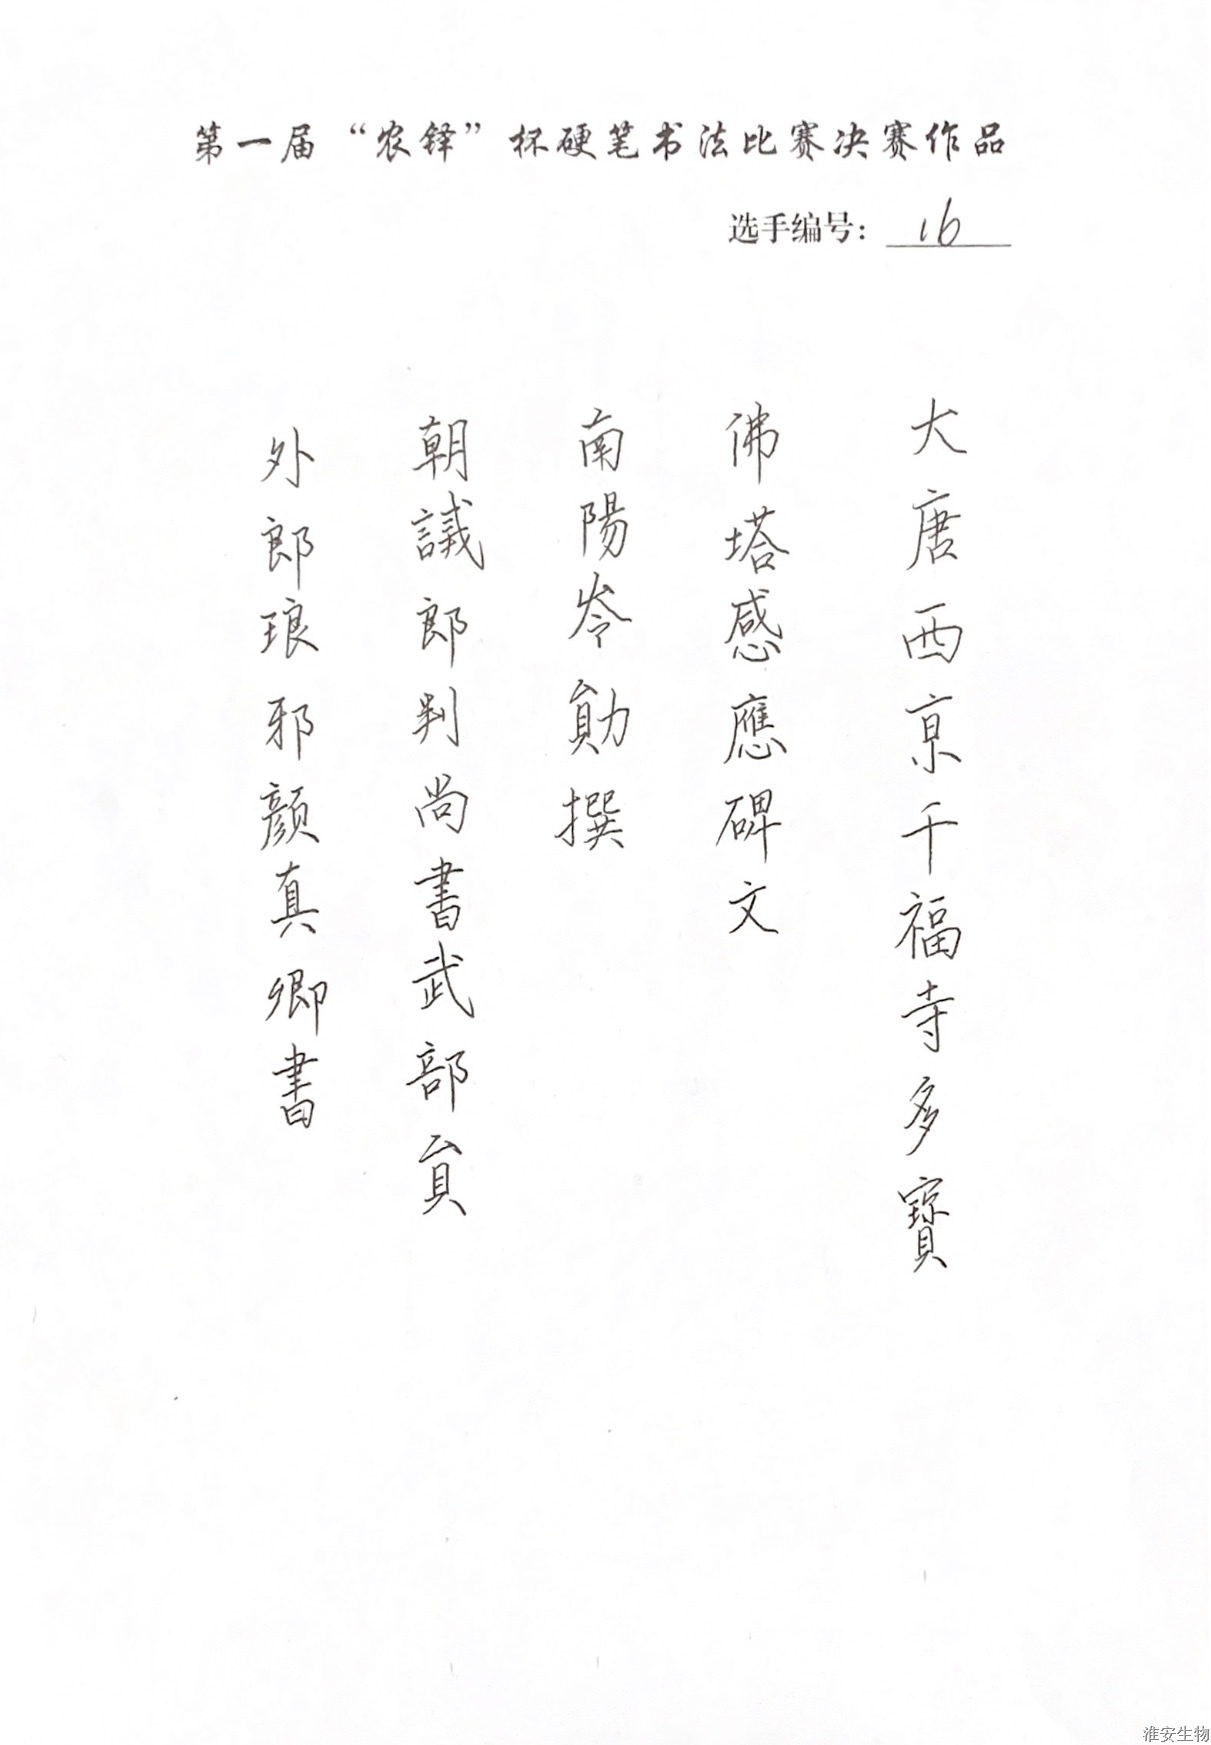 第一届“农铎”杯硬笔书法比赛决赛作品
选手编号：16
大唐西京千福寺多寶
佛塔感應碑文
南陽岑勛撰
朝議郎判尚書武部員
外郎琅邪顏真卿書
淮安生物